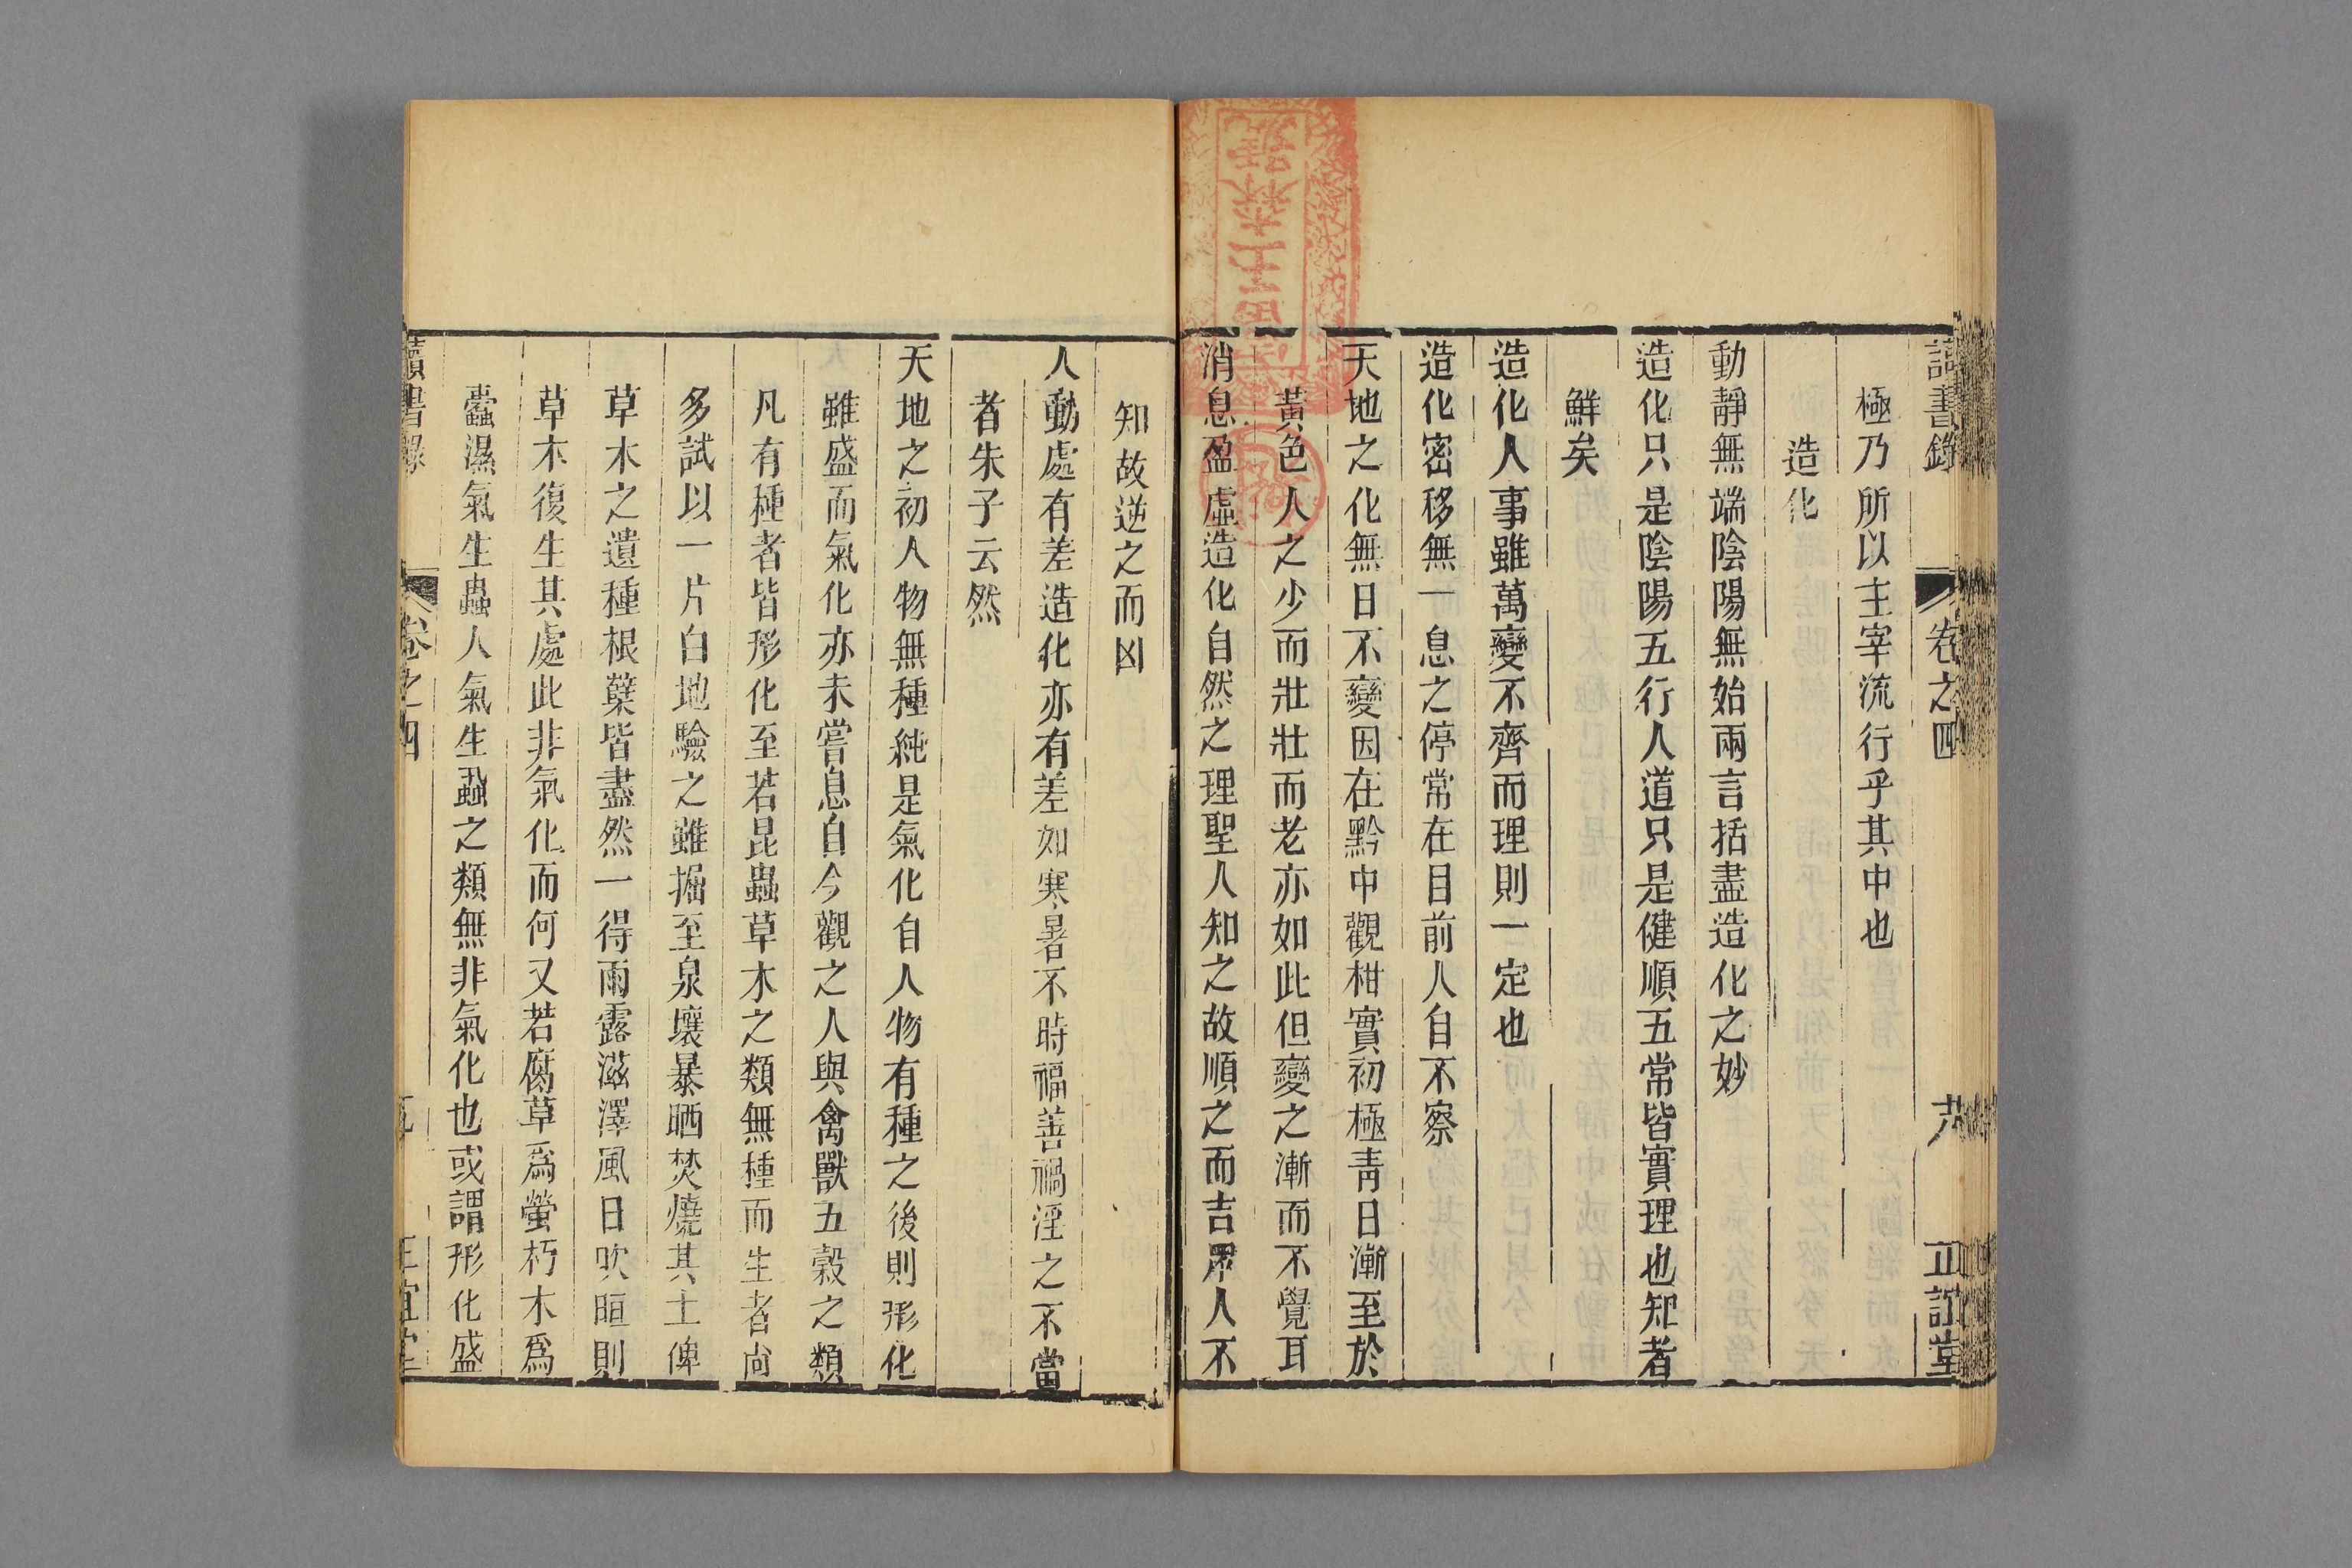 讀書錄 卷之四 正誼堂
極乃所以主宰流行乎其中也
造化
動靜無端陰陽無始兩言括盡造化之妙
造化只是陰陽五行人道只是健順五常皆實理也知者
鮮矣
造化人事雖萬變不齊而理則一定也
造化密移無一息之停常在目前人自不察
天地之化無日不變因在黔中觀柑實初極靑日漸至於
黃色人之少而壯壯而老亦如此但變之漸而不覺耳
消息盈虛造化自然之理聖人知之故順之而吉眾人不
知故逆之而凶
人動處有差造化亦有差如寒暑不時福善禍淫之不當
者朱子云然
天地之初人物無種純是氣化自人物有種之後則形化
雖盛而氣化亦未嘗息自今觀之人與禽獸五穀之類
凡有種者皆形化至若昆蟲草木之類無種而生者尙
多試以一片白地驗之雖掘至泉壤暴晒焚燒其土俾
草木之遺種根蘖皆盡然一得雨露滋澤風日吹晅則
草木復生其處此非氣化而何又若腐草爲螢朽木爲
蠹濕氣生蟲人氣生蝨之類無非氣化也或謂形化盛
讀書錄 卷之四 正誼堂